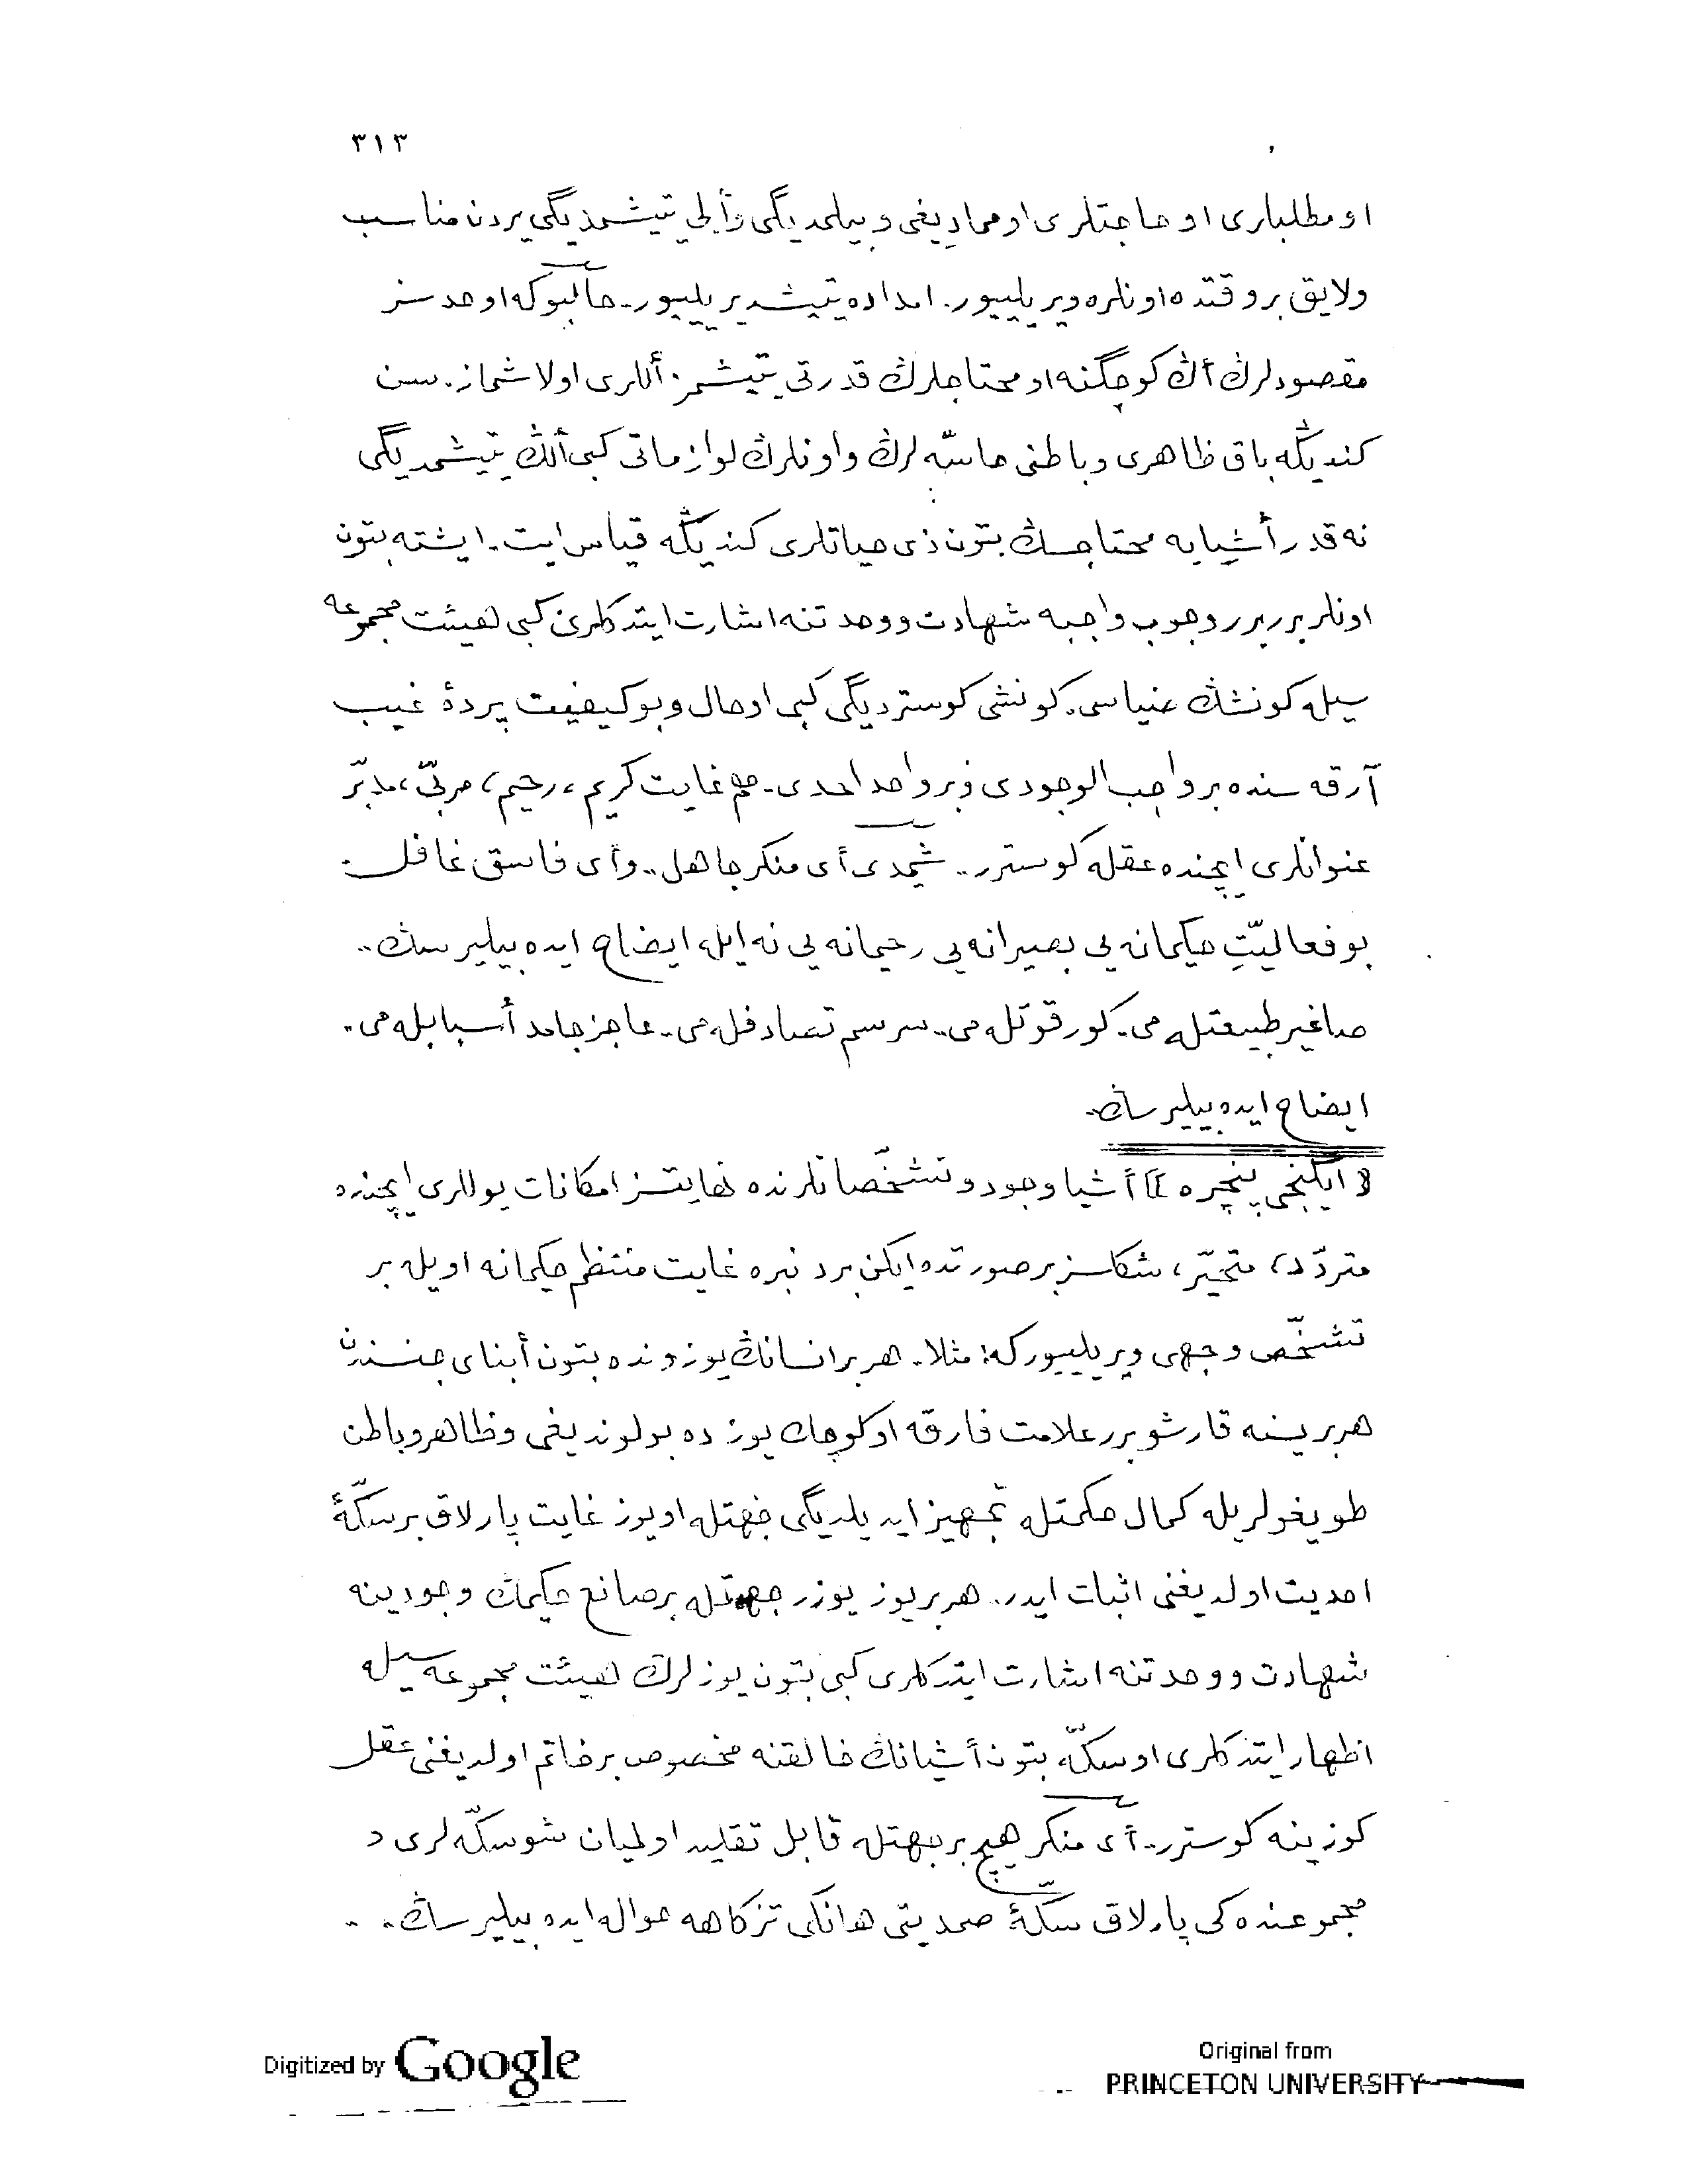 ٣١٣
او مطلبلری او حاجتلری اوممادیغی و بیلمدیگی وألی یتیشمدیگی یردن مناسب
ولایق بر وقتده اونلره ویریلییور. امداده یتیشدیریلییور. حالبوكه او حدسز
مقصودلرڭ أڭ كوچگنه او محتاجلرڭ قدرتی یتیشمز. أللری اولاشماز. سن
كندیڭه باق ظاهری و باطنی حاسّه لرڭ واونلرڭ لوازماتی كبی ألڭ یتیشمدیگی
نه قدر أشیایه محتاجسڭ بتون ذی حیاتلری كندیڭه قیاس ایت. ایشته بتون
اونلر برر برر وجوب واجبه شهادت و وحدتنه اشارت ایتدكلری كبی هیئت مجموعه
سیله كونشڭ ضیاسی كونشی كوستردیگی كبی او حال و بو كیفیت پردهٔ غیب
آرقه سنده بر واجب الوجودی و بر واحد احدی. هم غایت كریم، رحیم، مربّی، مدبّر
عنوانلری ایچنده عقله كوسترر.. شیمدی أی منكر جاهل.. وأی فاسق غافل.
بو فعالیّتِ حكیمانه یی بصیرانه یی رحیمانه یی نه ایله ایضاح ایده بیلیرسڭ..
صاغیر طبیعتله می. كور قوتله می. سرسم تصادفله می. عاجز جامد أسبابله می.
ایضاح ایده بیلیرسڭ.
﴿ ایكنجی پنچره ﴾ أشیا وجود و تشخّصاتلرنده نهایتسز امكانات یوللری ایچنده
متردّد، متحیّر، شكلسز بر صورتده ایكن بردنبره غایت منتظم حكیمانه اویله بر
تشخّص وجهی ویریلییوركه: مثلا. هر بر انسانڭ یوزونده بتون أبنای جنسندن
هر بریسنه قارشو برر علامت فارقه او كوچك یوزده بولوندیغی وظاهر و باطن
طویغولریله كمال حكمتله تجهیز ایدیلدیگی جهتله او یوز غایت پارلاق بر سكّهٔ
احدیت اولدیغنی اثبات ایدر. هر بر یوز یوزر جهتله بر صانع حكیمڭ وجودینه
شهادت و وحدتنه اشارت ایتدكلری كبی بتون یوزلرڭ هیئت مجموعه سیله
اظهار ایتدكلری او سكّه بتون أشیانڭ خالقنه مخصوص بر خاتم اولدیغنی عقل
كوزینه كوسترر. أی منكر هیچ بر جهتله قابل تقلید اولمیان شو سكّه لری و
مجموعنده كی پارلاق سكّهٔ صمدیتی هانگی تزكاهه حواله ایده بیلیرسڭ..
Digitized by Google
Original from
PRINCETON UNIVERSITY